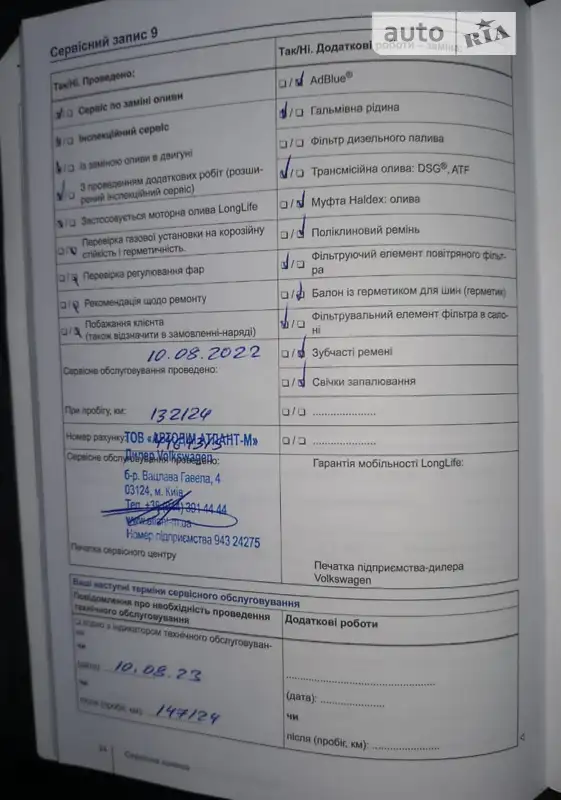 auto RIA
Сервісний запис 9
Так/Ні. Проведено:
☑/☐ Сервіс по заміні оливи
☑/☐ Інспекційний сервіс
☑/☐ Із заміною оливи в двигуні
☑/☐ З проведенням додаткових робіт (розши-
рений інспекційний сервіс)
☑/☐ Застосовується моторна олива LongLife
☐/☑ Перевірка газової установки на корозійну
стійкість і герметичність.
☐/☑ Перевірка регулювання фар
☐/☑ Рекомендація щодо ремонту
☐/☑ Побажання клієнта
(також відзначити в замовленні-наряді)
10.08.2022
Сервісне обслуговування проведено:
При пробігу, км: 132124
Номер рахунку:
ТОВ «АВТОДІМ АТЛАНТ-М»
Дилер Volkswagen
Сервісне обслуговування проведено:
б-р. Вацлава Гавела, 4
03124, м. Київ
Тел. 391 44 44
Номер підприємства 943 24275
Печатка сервісного центру
Так/Ні. Додаткові роботи – заміна
☐/☑ AdBlue®
☑/☐ Гальмівна рідина
☐/☐ Фільтр дизельного палива
☑/☐ Трансмісійна олива: DSG®, ATF
☐/☑ Муфта Haldex: олива
☐/☑ Поліклиновий ремінь
☑/☐ Фільтруючий елемент повітряного фільт-
ра
☐/☑ Балон із герметиком для шин (герметик)
☑/☐ Фільтрувальний елемент фільтра в сало-
ні
☐/☑ Зубчасті ремені
☐/☑ Свічки запалювання
☐/☐ .....................
☐/☐ .....................
Гарантія мобільності LongLife:
Печатка підприємства-дилера
Volkswagen
Ваші наступні терміни сервісного обслуговування
Повідомлення про необхідність проведення
технічного обслуговування
☐ Згідно з індикатором технічного обслуговуван-
ня
чи
(дата): 10.08.23
чи
після (пробіг, км): 147124
Додаткові роботи
(дата): .....................
чи
після (пробіг, км): .....................
34
Сервісна книжка